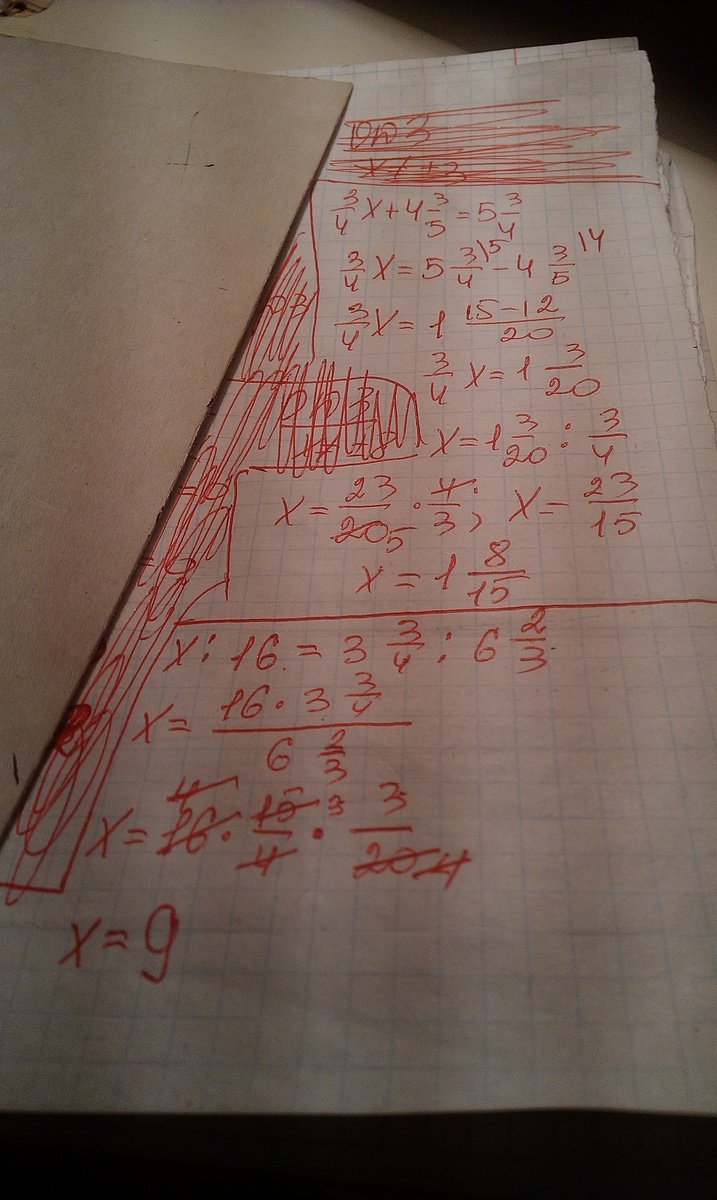 3/4 x + 4 3/5 = 5 3/4
3/4 x = 5 3/4 \5 - 4 3/5 \4
3/4 x = 1 15-12/20
3/4 x = 1 3/20
x = 1 3/20 : 3/4
x = 23/20 5 · 4/3; x = 23/15
x = 1 8/15
x : 16 = 3 3/4 : 6 2/3
x = 16 · 3 3/4 / 6 2/3
x = 16 4 · 15 3/4 · 3/20 4
x = 9